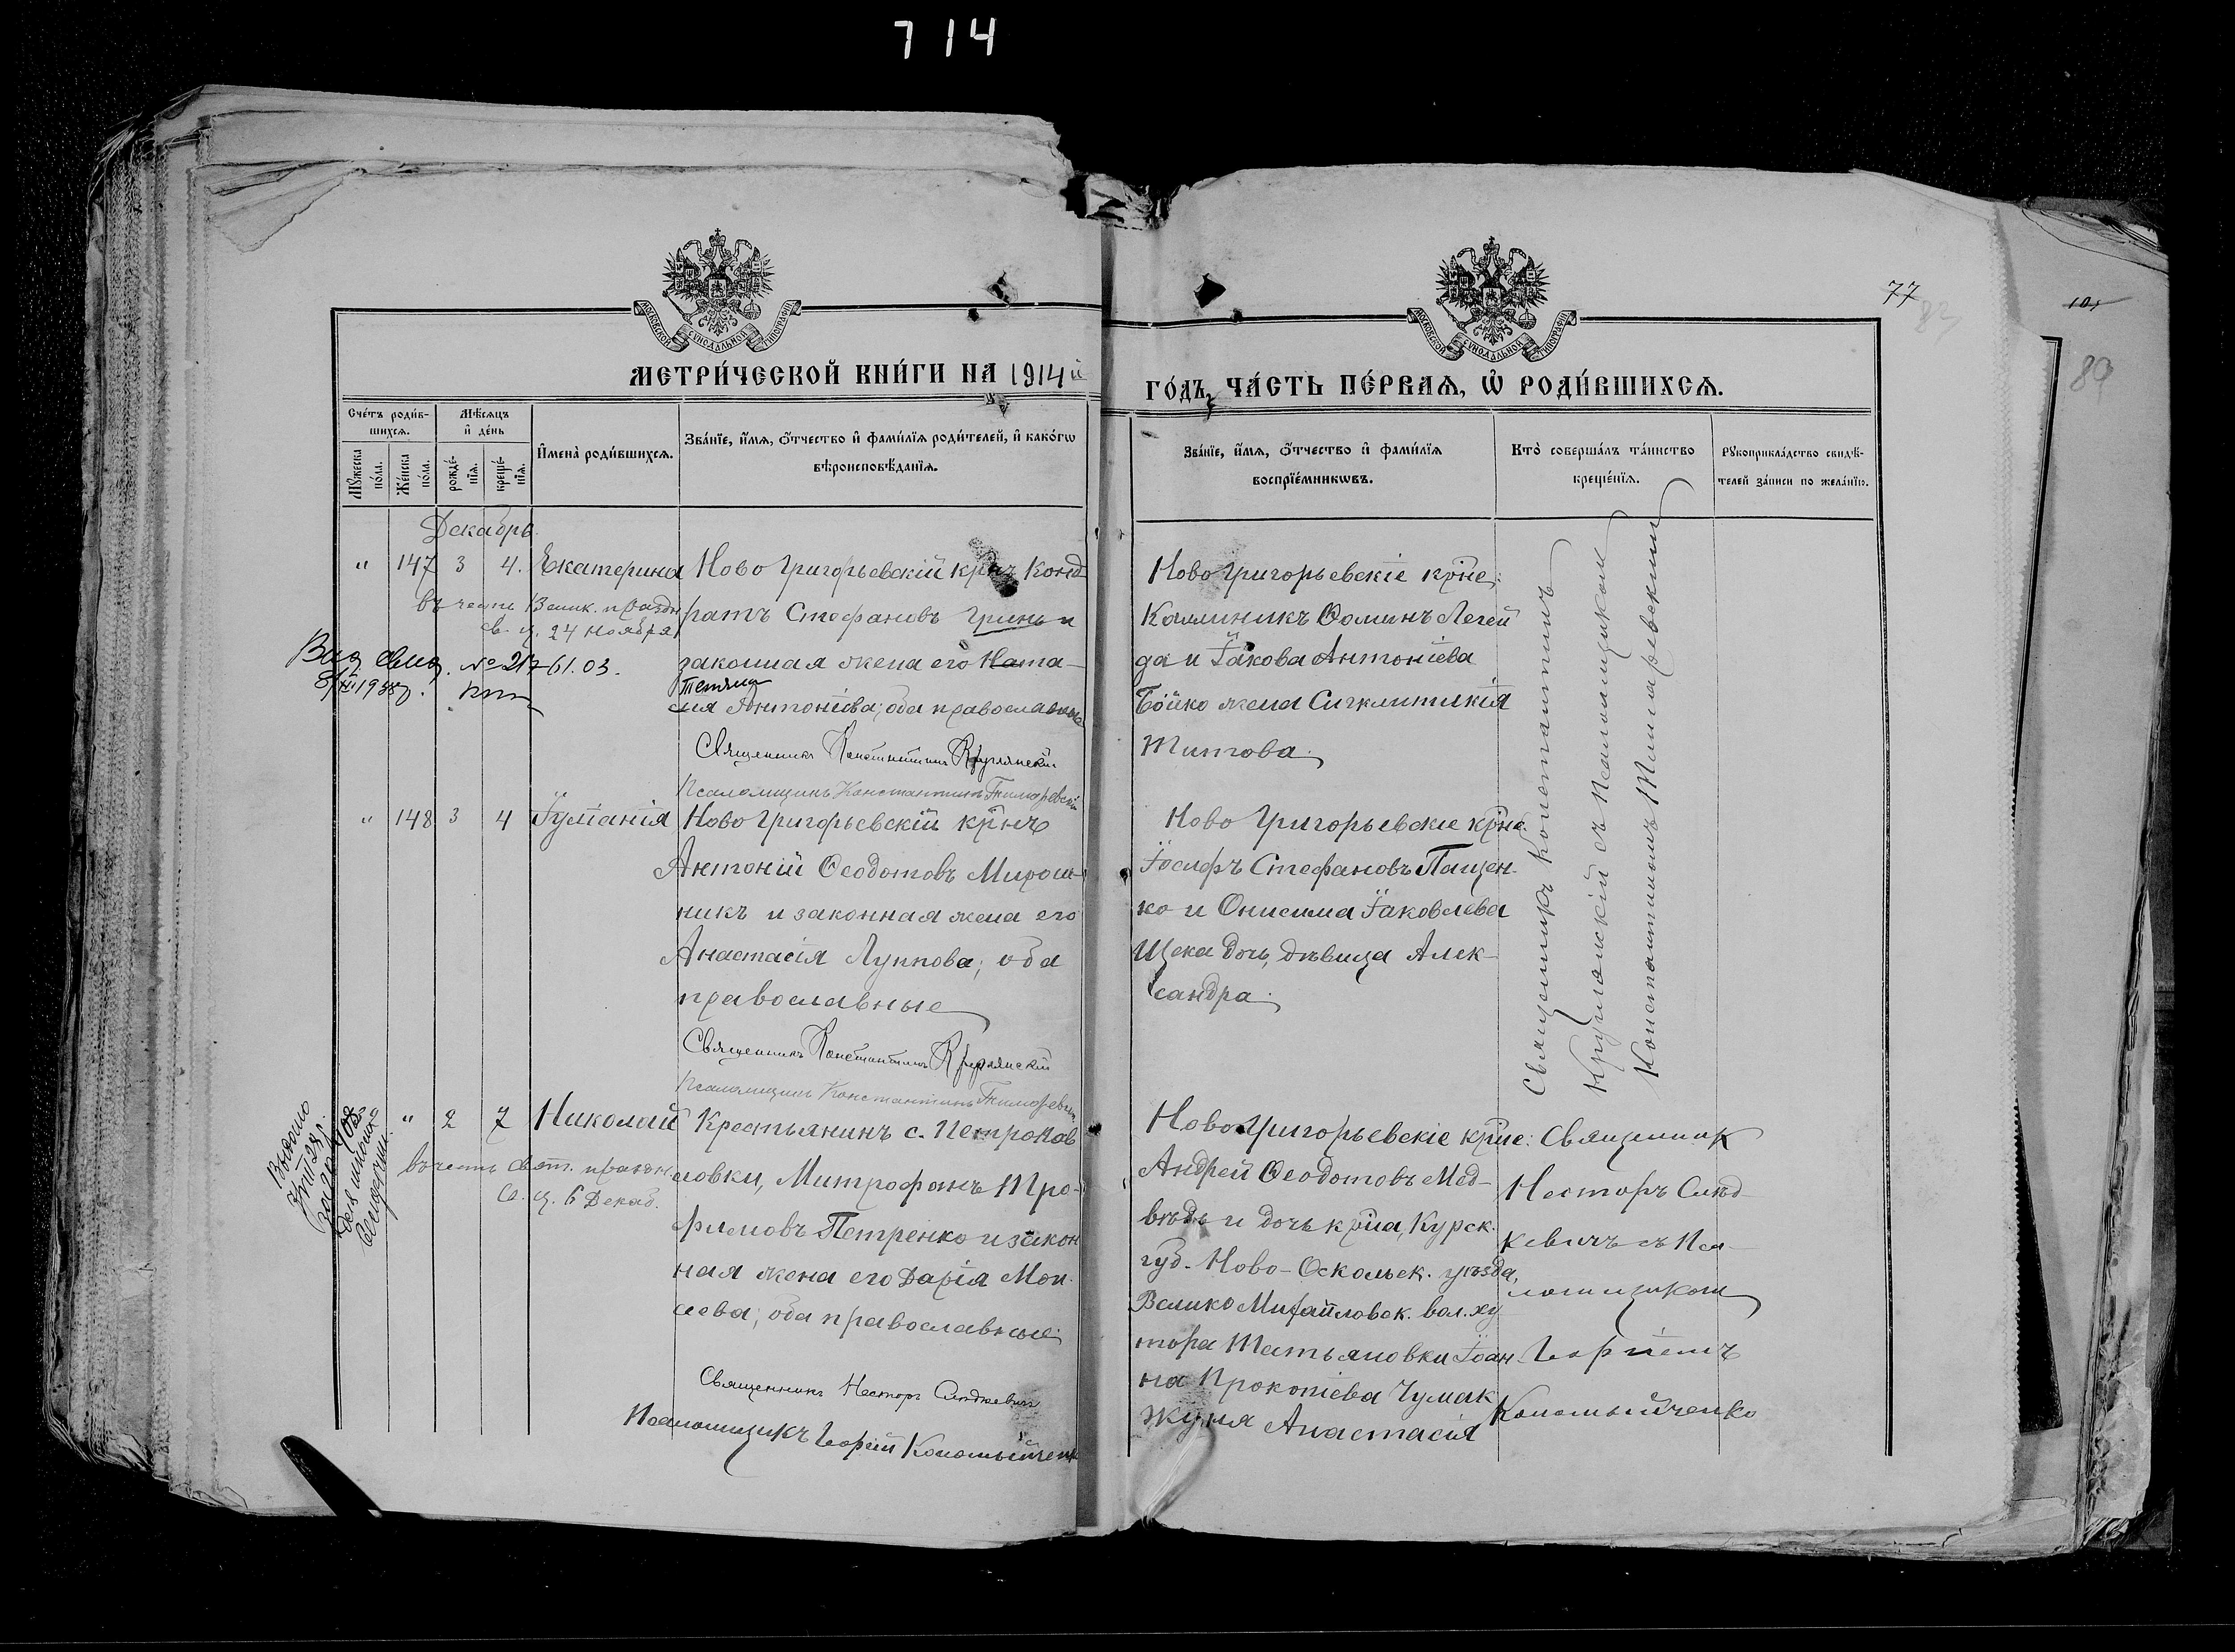 714
77
82
101
89
МОСКОВСКОЙ СѴНОДАЛЬНОЙ ТИПОГРАФІИ
МОСКОВСКОЙ СѴНОДАЛЬНОЙ ТИПОГРАФІИ
МЕТРИ́ЧЕСКОЙ КНИ́ГИ НА 1914й
ГО́ДЪ, ЧА́СТЬ ПЕ́РВАѦ, Ѡ҆ РОДИ́ВШИХСѦ.
Сче́тъ роди́в-
шихсѧ.
Мꙋ́жеска
по́ла.
Же́нска
по́ла.
Мѣ́сѧцъ
и҆ де́нь
рожде́-
нїѧ.
креще́-
нїѧ.
И҆мена̀ роди́вшихсѧ.
Зва́нїе, и҆́мѧ, ѻ҆́тчество и҆ фами́лїѧ роди́телей, и҆ како́гѡ
вѣроисповѣ́данїѧ.
Зва́нїе, и҆́мѧ, ѻ҆́тчество и҆ фами́лїѧ
воспрїе́мникѡвъ.
Кто̀ соверша́лъ та́инство
креще́нїѧ.
Рꙋкоприкла́дство свидѣ́-
телей за́писи по жела́нїю.
Декабрь.
" 147 3 4. Екатерина
въ честь Велик. праздн
св. ц. 24 ноября
№ 217-61.03.
Ново Григорьевскій крнъ Конд-
ратъ Стефановъ Гринь и
законная жена его Ната-
Тетяна
лія Антоніева; оба православные
Священникъ Константинъ Круглянскій
Псаломщикъ Константинъ
Ново Григорьевскіе крне:
Каллиникъ Ѳоминъ Легей
да и Іакова Антоніева
Бойко жена Сигклитикія
Титова.
Священникъ Константинъ
Круглянскій съ Псаломщикомъ
Константиномъ
" 148 3 4 Іуліанія
Ново Григорьевскій крнъ
Антоній Ѳеодотовъ Мирош-
никъ и законная жена его
Анастасія Луппова; оба
православные
Священникъ Константинъ Круглянскій
Псаломщикъ Константинъ
Ново Григорьевскіе крне:
Іосифъ Стефановъ Пащен-
ко и Онисима Іаковлева
Щека дочь, дѣвица Алек-
сандра.
" 2 7 Николай
въ честь Свят. праздн.
св. ц. 6 Декаб.
Крестьянинъ с. Петроков
ловки, Митрофанъ Тро-
фимовъ Петренко и закон
ная жена его Дарія Мои-
сеева; оба православные
Священникъ Несторъ Сладкевичъ
Псаломщикъ Георгій Коломыйченк
Ново Григорьевскіе крне:
Андрей Ѳеодотовъ Мед-
вѣдь и дочь крна, Курск.
губ. Ново-Оскольск. уѣзда,
Велико Михайловск. вол. ху
тора Татьяновки Іоан-
на Прокопіева Чумак
Анастасія
Священник
Несторъ Слад-
кевичъ съ Пса-
ломщиком
Георгіемъ
Коломыйченко